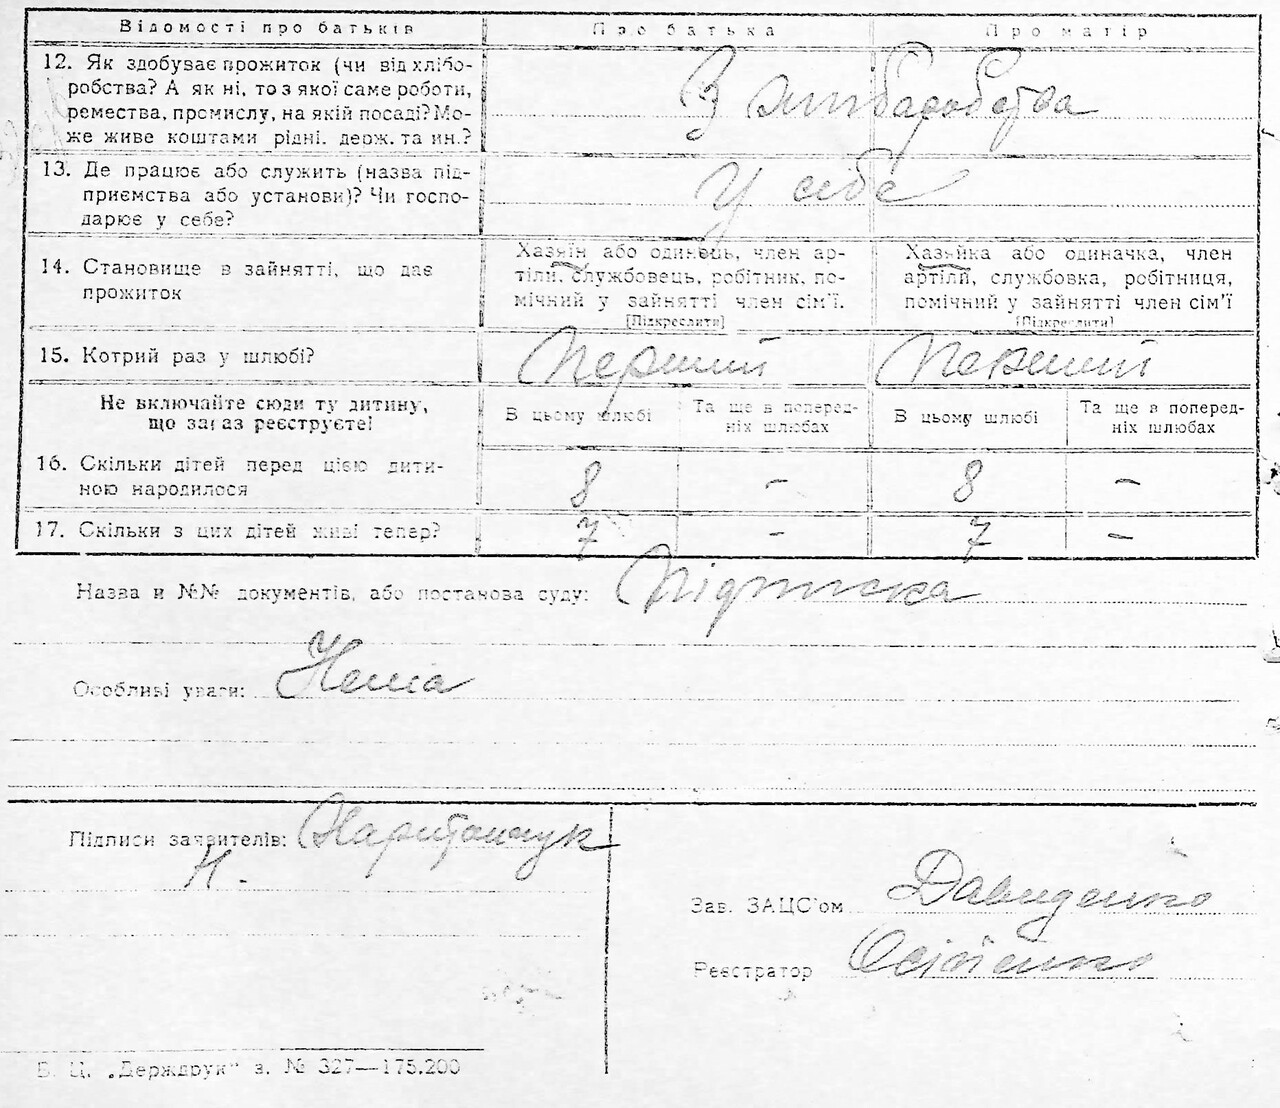 Відомості про батьків Про батька Про матір
12. Як здобуває прожиток (чи від хлібо-
робства? А як ні, то з якої саме роботи,
ремества, промислу, на якій посаді? Мо-
же живе коштами рідні, держ. та ин.?
З хліборобства
13. Де працює або служить (назва під-
приємства або установи)? Чи госпо-
дарює у себе?
У себе
14. Становище в зайнятті, що дає
прожиток
Хазяїн або одинець, член ар-
тіли, службовець, робітник, по-
мічний у зайнятті член сім'ї.
[Підкреслити]
Хазяйка або одиначка, член
артіли, службовка, робітниця,
помічний у зайнятті член сім'ї
[Підкреслити]
15. Котрий раз у шлюбі? Перший Перший
Не включайте сюди ту дитину,
що зараз реєструєте!
В цьому шлюбі
Та ще в поперед-
ніх шлюбах
В цьому шлюбі
Та ще в поперед-
ніх шлюбах
16. Скільки дітей перед цією дити-
ною народилося
8 – 8 –
17. Скільки з цих дітей живі тепер? 7 – 7 –
Назва и №№ документів, або постанова суду: Підписка
Особливі уваги: Нема
Підписи заявителів:
Н.
Зав. ЗАЦС'ом Давиденко
Реєстратор
Б. Ц. „Держдрук" з. № 327—175.200